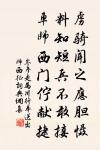 虏骑闻之应胆慑
料知短兵不敢接
车师西门伫献捷
岑参走马川行奉送出
师西征词典网集